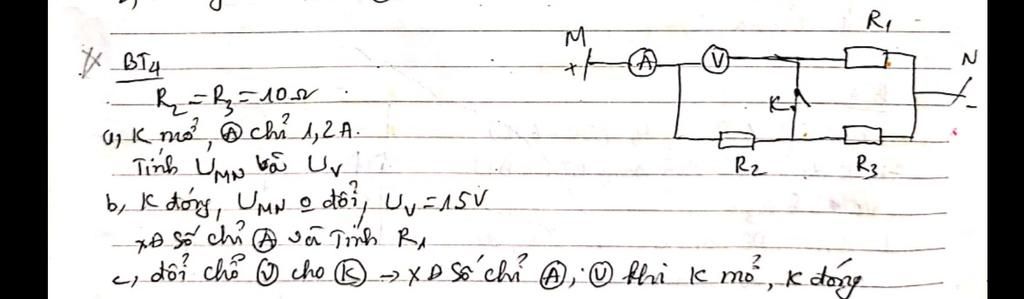 BT4
R₂ = R₃ = 10Ω
a, K mở, Ⓐ chỉ 1,2A.
Tính U_MN và U_V
b, K đóng, U_MN o đổi, U_V = 15V
xĐ số chỉ Ⓐ và Tính R₁
c, đổi chỗ Ⓥ cho Ⓚ → xĐ số chỉ Ⓐ, Ⓥ khi K mở, K đóng
M
+
A
V
R₁
N
-
K
R₂
R₃